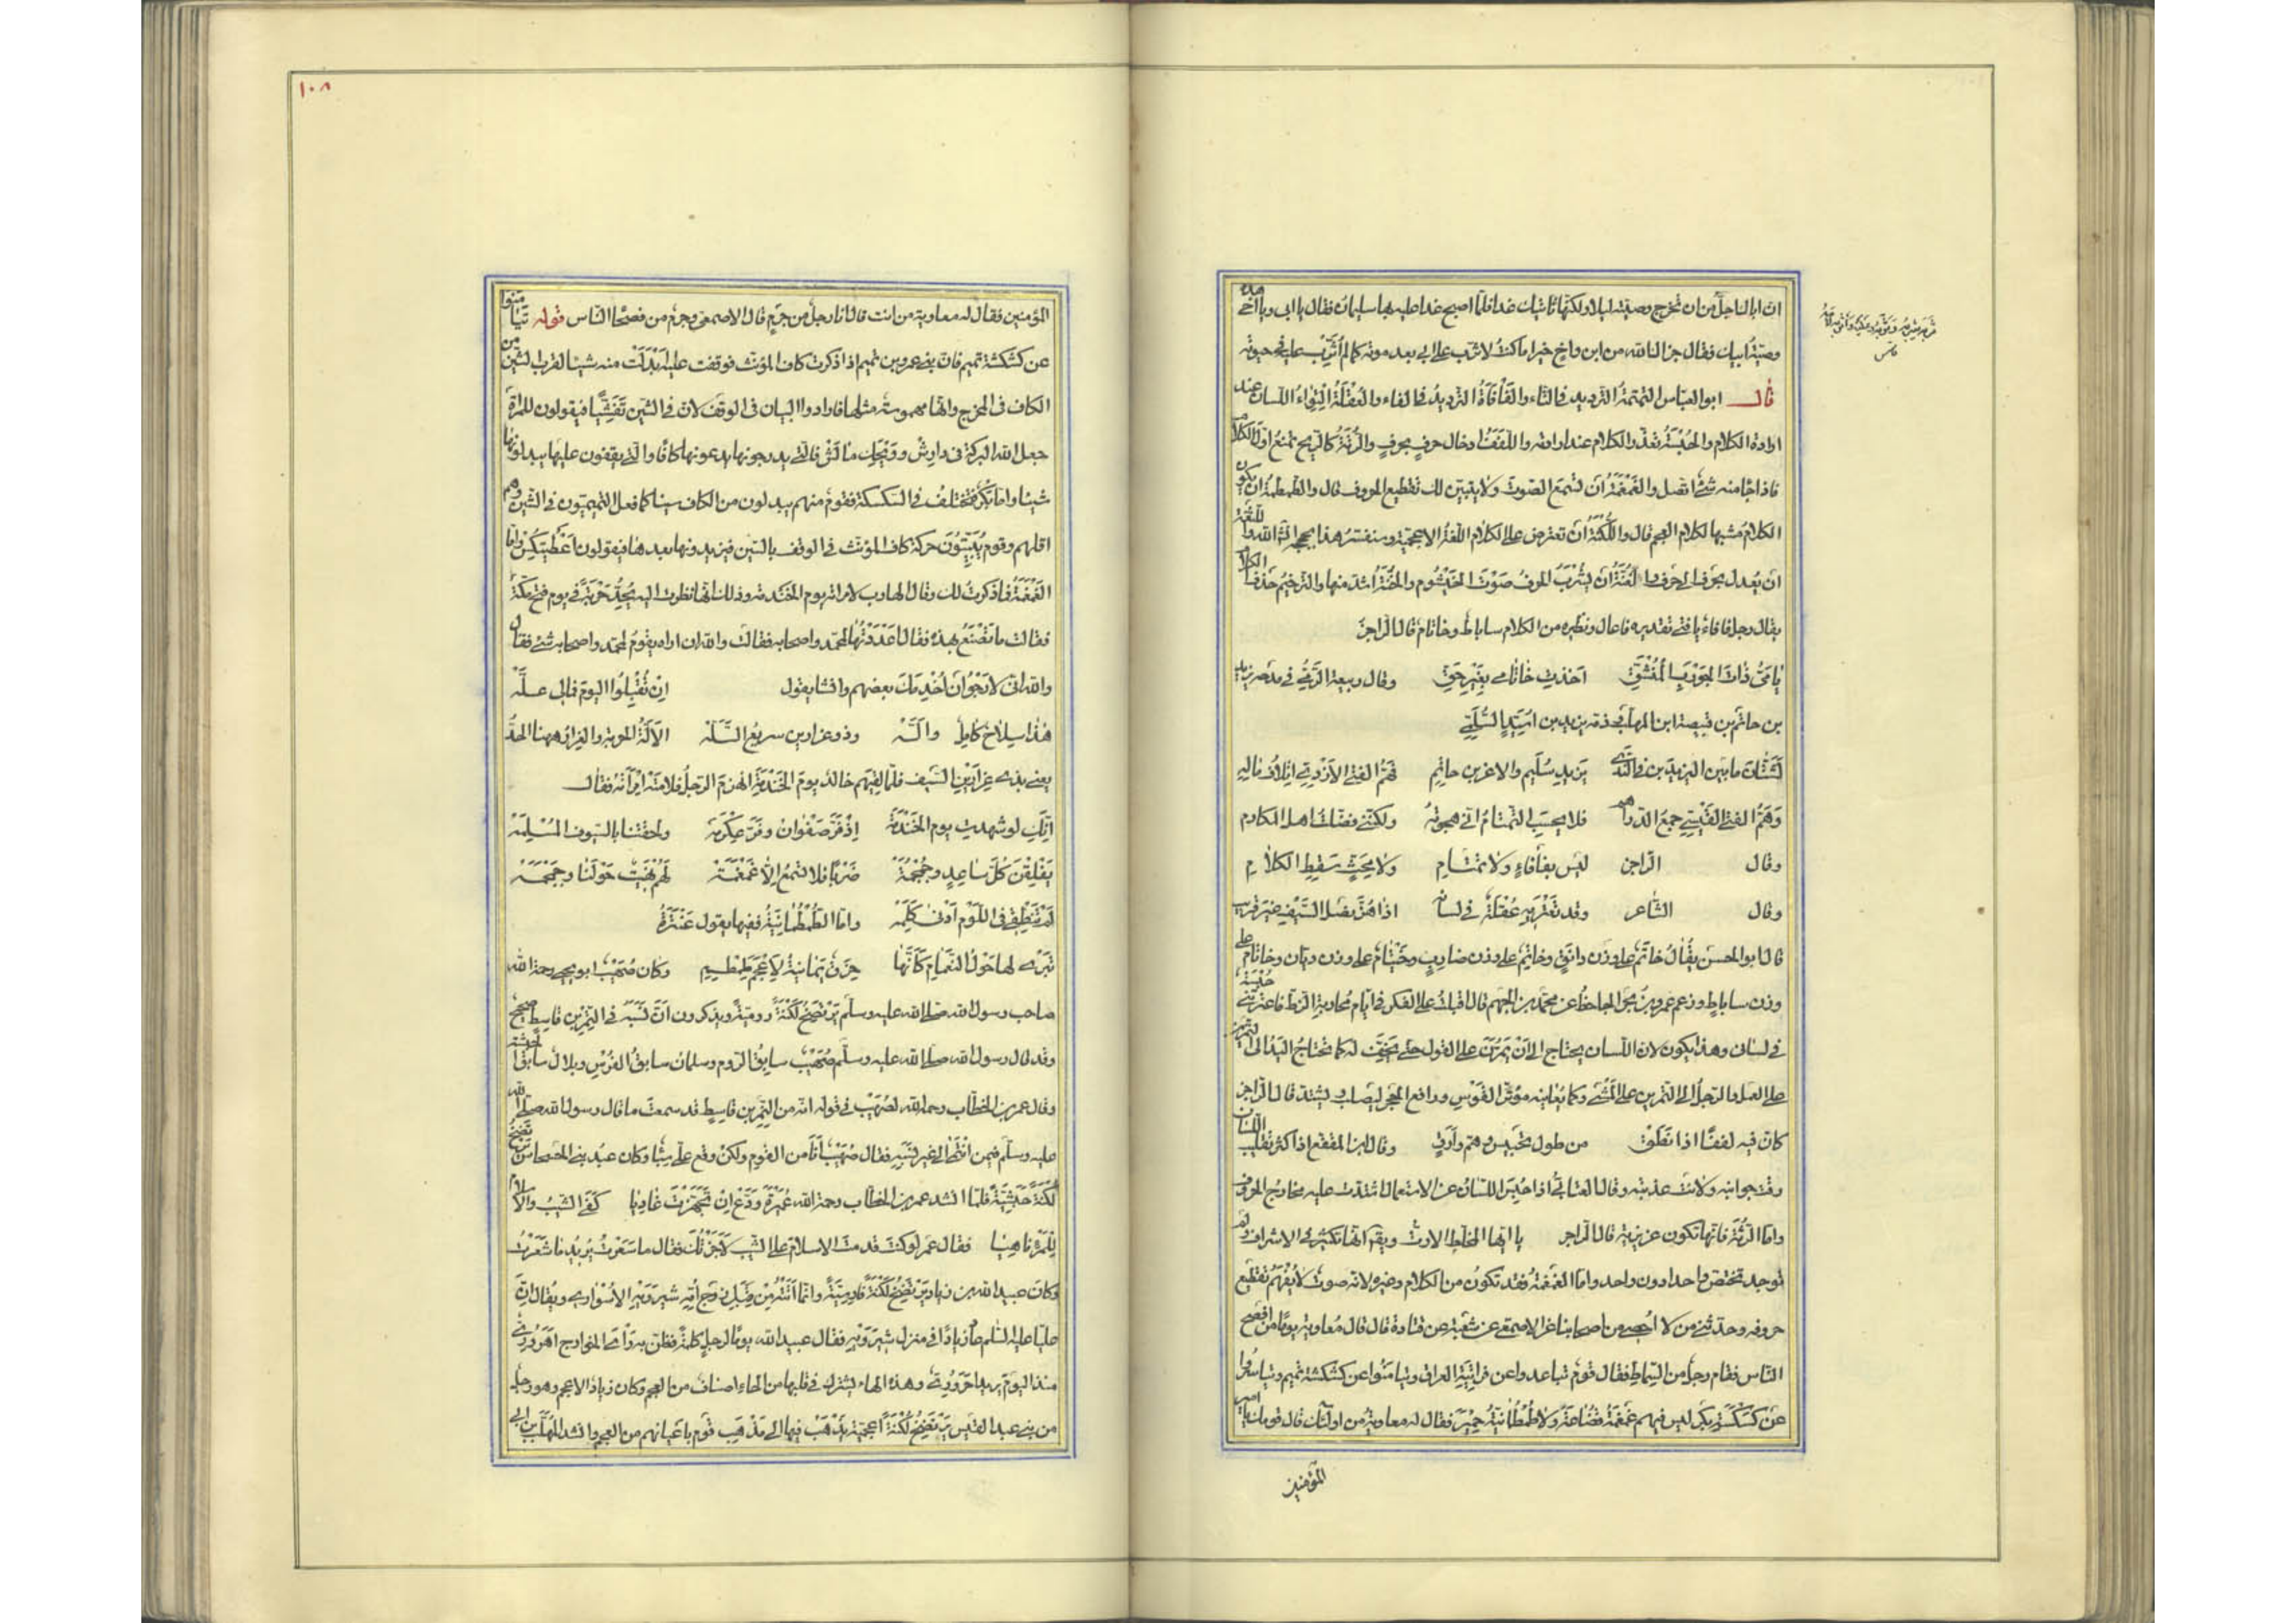 ان ابا الناجل من ان تخرج وصيته ليلا ولكنها تاتيك غدا فلما اصبح غدا عليه بها سليمان فقال يا ابي ويا اخي هذه
وصية ابيك فقال جزا الله من ابن واخ خيرا ما كنت لاثرب على ابي بعد موته كما لم أثرب عليه في حيوته
قال ابو العباس التمتمة الترديد في التاء والفأفأة الترديد في الفاء والعقلة التواء اللسان عند
ارادة الكلام والحبسة تعذر الكلام عند ارادته واللفف ادخال حرف بحرف والرتة كالريح تمنع اول الكلام
فاذا جاء منه شئ اتصل والغمغمة أن تسمع الصوت ولا يتبين لك تقطيع الحروف قال والطمطمة ان يكون
الكلام مشبها لكلام العجم قال واللكنة أن تعترض على الكلام اللغة الاعجمية وسنفسر هذا بحججه ان شاء الله واللثغة
أن يعدل بحرف الى حرف والغنة أن يشرب الحرف صوت الخيشوم والخنة أشد منها والترخيم حذف الكلام
يقال رجل فافاء يا فتى تقديره فاعال ونظيره من الكلام ساباط وخاتام قال الراجز
يا مي ذات الجورب المنشق احذت خاتامي بغير حق وقال ربيعة الرقي في مدحه يزيد
بن حاتم بن قبيصة ابن المهلب وذمه يزيد بن اسيد السلمي
لشتان ما بين اليزيدين في الندى يزيد سليم والاغر بن حاتم فهم الفتى الأزدي إتلاف ماله
وهم الفتى القيسي جمع الدراهم فلا يحسب التمتام اني هجوته ولكنني فضلت اهل المكارم
وقال الراجز ليس بفأفاء ولا تمتام ولا محث سقط الكلام
وقال الشاعر وقد تعتريه عقلة في لسانه اذا هز نصل السيف غير قريب
قال ابو الحسن يقال خاتم على وزن دانق وخاتم على وزن ضارب وخيتام على وزن ديان وخاتام على
وزن ساباط وزعم عمرو بن بحر الجاحظ عن محمد بن الجهم قال اقبلت على الفكر في ايام محاربة الزط فاعترتني حبسة
في لسان وهذا يكون لان اللسان يحتاج الى أن يمرن على القول حتى يخف له كما تحتاج اليد الى التمرين
على العمل والرجل الى التمرين على المشي وكما يعاينه موتر القوس ورافع الحجر ليصلب ويشتد قال الراجز
كان فيه لففا اذا نطق من طول تحبيس وهم وأرق وقال ابن المقفع اذا كثر تقليب اللسان
رقت جوانبه ولانت عذبته وقال العتابي اذا حبس اللسان عن الاستعمال اشتدت عليه مخارج الحروف
واما الرتة فانها تكون غريزية قال الراجز يا ايها المخلط الارت ويقال انها تكثر في الاشراف ولم
توجد تختص واحدا دون واحد واما الغمغمة فقد تكون من الكلام وغيره لانه صوت لا يفهم تقطيع
حروفه وحدثني من لا أحصي من اصحابنا عن الاصمعي عن شعبة عن قتادة قال قال معاوية يوما من افصح
الناس فقام رجل من السماط فقال قوم تباعدوا عن فراتية العراق وتيامنوا عن كشكشة تميم وتياسروا
عن كسكسة بكر ليس فيهم غمغمة قضاعة ولا طمطمانية حمير فقال له معاوية من اولئك قال قومك يا امير
المؤمنين
المؤمنين فقال له معاوية من انت قال انا رجل من جرم قال الاصمعي وجرم من فصحا الناس قوله تيامنوا
عن كشكشة تميم فان بني عمرو بن تميم اذا ذكرت كاف المؤنث فوقفت عليها أبدلت منه شينا لقرب الشين من
الكاف في المخرج وانها مهموسة مثلها فارادوا البيان في الوقف لان في الشين تفشيا فيقولون للمرأة
جعل الله البركة في دارش وويحك ما لش فالتي يدرجونها يدعونها كافا والتي يقفون عليها يبدلونها
شينا واما بكر فتختلف في الكسكسة فقوم منهم يبدلون من الكاف سينا كما فعل التميميون في الشين وهم
اقلهم وقوم يبينون حركة كاف المؤنث في الوقف بالسين فيزيدونها بعدها فيقولون اعطيتكس واما
الغمغمة فاذكرت لك وقال الهارب لامراته يوم الخندمة وذلك انها نظرت اليه يحد حربة في يوم فتح مكة
فقالت ما تصنع بهذه فقال اعددتها لمحمد واصحابه فقالت والله ان اراه يقوم لمحمد واصحابه شئ فقال
والله اني لارجو أن أخدمك بعضهم وانشا يقول ان تقبلوا اليوم فما لي علة
هذا سلاح كامل وألة وذو غرارين سريع السلة الالة الحربة والغرار ههنا الحد
يعني بذي غرارين السيف فلما لقيهم خالد يوم الخندمة انهزم الرجل فلامته امرأته فقال
انك لو شهدت يوم الخندمة إذ فر صفوان وفر عكرمة ولحقتنا بالسيوف المسلمة
يفلقن كل ساعد وجمجمة ضربا فلا تسمع الا غمغمة لهم نهيت حولنا وجمجمة
لم تنطقي في اللوم أدنى كلمة واما الطمطمانية ففيها يقول عنترة
تبري لها حول النعام كانها حزق يمانية لاعجم طمطم وكان صهيب ابو يحيى رحمة الله
صاحب رسول الله صلى الله عليه وسلم يرتضخ لكنة رومية ويذكرون ان نسبه في النمر بن قاسط صحيح
وقد قال رسول الله صلى الله عليه وسلم صهيب سابق الروم وسلمان سابق الفرس وبلال سابق الحبشة
وقال عمر بن الخطاب رحمه الله لصهيب في قوله انه من النمر بن قاسط قد سمعت ما قال رسول الله صلى الله
عليه وسلم فيمن انتمى الى غير نسبه فقال صهيب انا من القوم ولكن وقع علي سبا وكان عبد بني الحسحاس يرتضخ
لكنة حبشية فلما انشد عمر بن الخطاب رحمة الله عميرة ودع ان تجهزت غاديا كفى الشيب والاسلام
للمرء ناهيا فقال عمر لو كنت قدمت الاسلام على الشيب لاجزتك فقال ما سعرت يريد ما شعرت
وكان عبيد الله بن زياد يرتضخ لكنة فارسية وانما اتته من قبل زوج أمه شيرويه الاسواري ويقال ان
عليا عليه السلم عاد زيادا في منزل شيرويه فقال عبيد الله يوما لرجل كلمة فظن به رأي الخوارج اهروري
منذ اليوم يريد احروري وهذه الهاء يشترك في قلبها من الحاء اصناف من العجم وكان زياد الاعجم وهو رجل
من بني عبد القيس يرتضخ لكنة اعجمية يذهب فيها الى مذهب قوم باعيانهم من العجم وانشد المهلب بن ابي
١٠٨